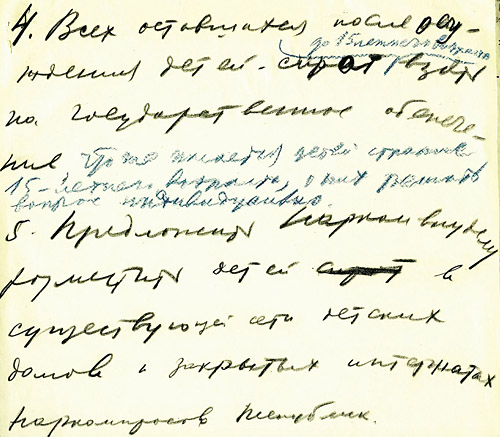 4. Всех оставшихся после осу-
до 15-летнего возраста
ждения детей-сирот взять
на государственное обеспече-
ние Что же касается детей старше
15-летнего возраста, о них решать
вопрос индивидуально.
5. Предложить Наркомвнуделу
разместить детей сирот в
существующей сети детских
домов и закрытых интернатах
наркомпросов республик.